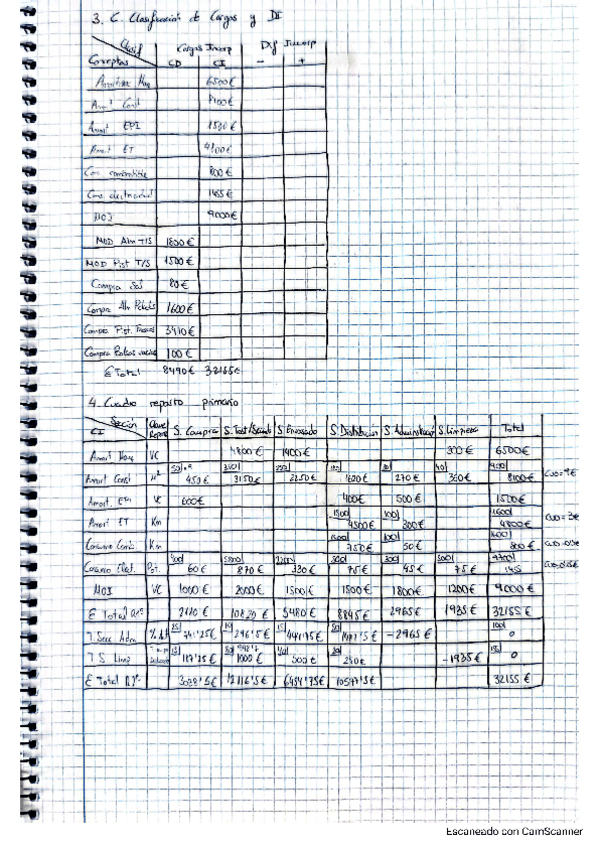 3. C. Clasificación de Cargas y DI
Clasif Cargas Incorp Dif Incorp
Conceptos CD CI - +
Amortizac Maq 6500€
Amort Const 8100€
Amort EPI 1500€
Amort ET 4800€
Con. combustible 800€
Cons electricidad 1455€
MOI 9000€
MOD Alm TIS 1800€
MOD Pist T/S 1500€
Compra Sal 80€
Compra Alm Peladas 1600€
Compra Pist. 3410€
Compra Bolsas vacías 100€
Σ Total 8490€ 32155€
4. Cuadro reparto primario
Sección Clave Reparto S. Compra S. Tost/Salado S. Envasado S. Distribución S. Administración S. Limpieza Total
CI
Amort Maq VC 4800€ 1400€ 300€ 6500€
Amort Const M² 50 450€ 350 3150€ 250 2250€ 1620€ 30 270€ 40 360€ 900 8100€ CUO=9€
Amort EPI VC 600€ 400€ 500€ 1500€
Amort ET Km 1500 4500€ 100 300€ 1600 4800€ CUO=3€
Consumo Comb. Km 1500 750€ 100 50€ 1600 800€ CUO=0'5€
Consumo Elect. Pot. 60€ 870€ 330€ 75€ 45€ 75€
MOI VC 1000€ 2000€ 1500€ 1500€ 1800€ 1200€ 9000€
Σ Total 2110€ 10820€ 5480€ 8845€ 2965€ 1935€ 32155€
T. Secc Adm 25 741'25€ 10 296'5€ 15 50 -2965€ 100 0
T S Limp 117'25€ 1000€ 500€ 250€ -1935€ 0
Σ Total 12116'5€ 10577'5€ 32155€
Escaneado con CamScanner